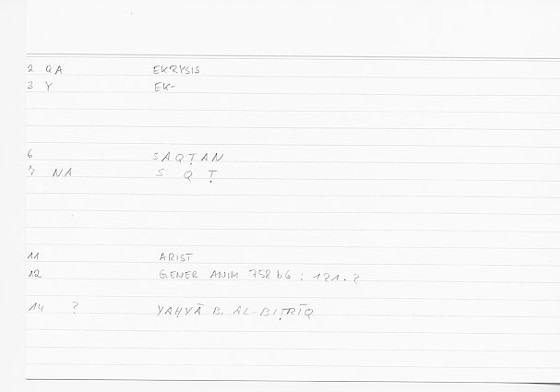 2 QA EKRYSIS
3 Y EK-
6 SAQṬAN
7 NA S Q Ṭ
11 ARIST
12 GENER ANIM 758 b6 : 121.2
14 ? YAḤYĀ B. AL-BIṬRĪQ